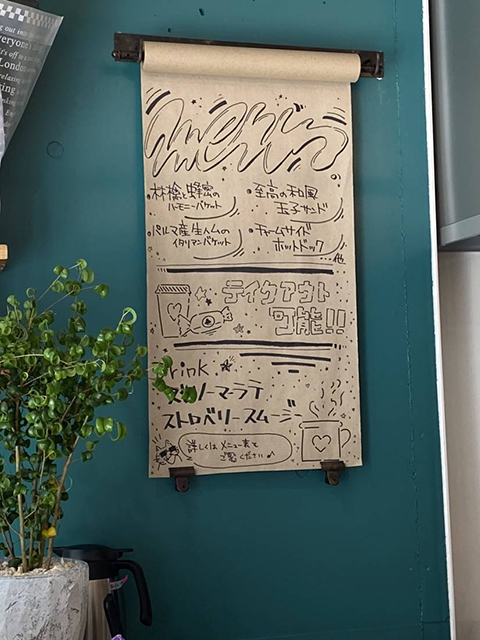 menu
・林檎と蜂蜜の
ハーモニーバケット
・至高の和風
玉子サンド
・パルマ産生ハムの
イタリアンバケット
・チャームサイド
ホットドック
...他
テイクアウト
可能!!
rink.
ーマーラテ
ストロベリースムージー
詳しくはメニュー表を
ご覧ください♪
out
London